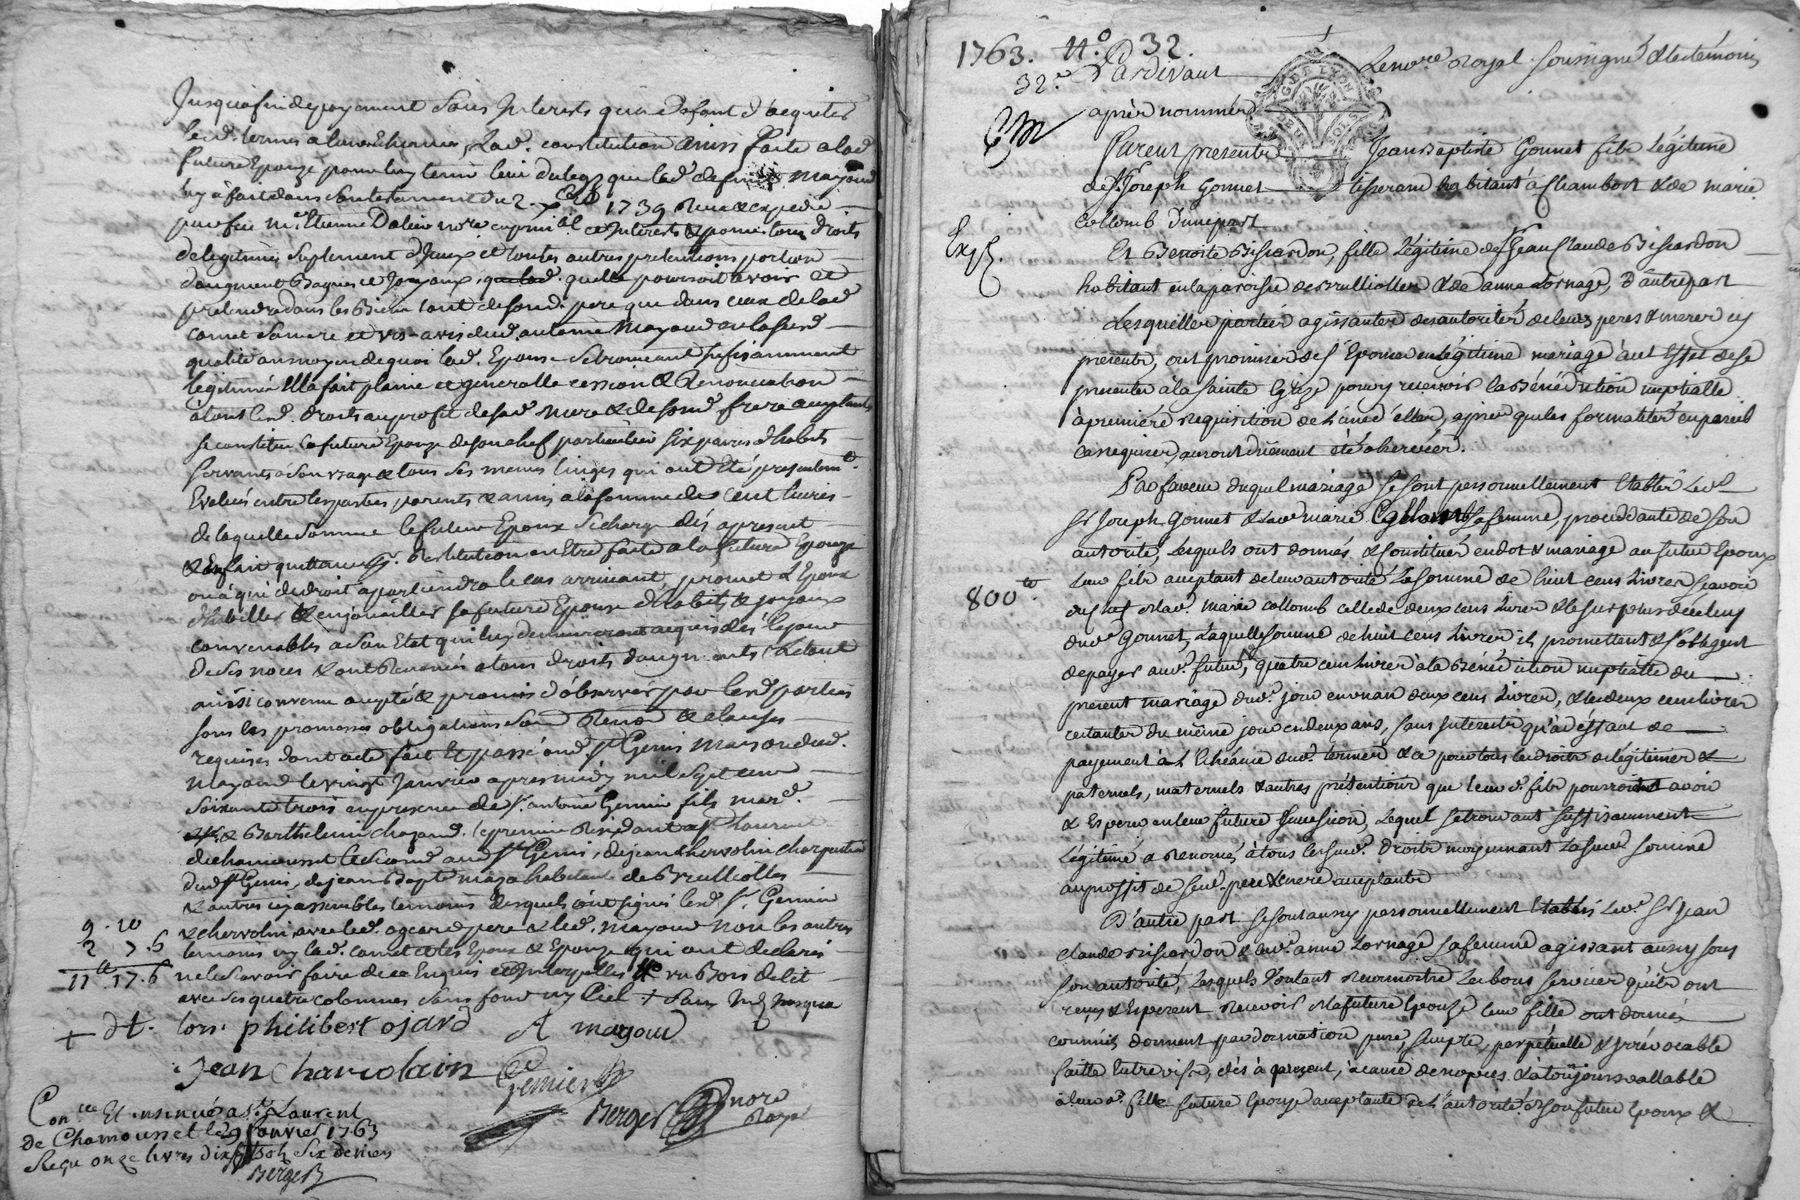 Jusqua fin de payement sans Interests qu'a defaut d'acquiter
lesd. termes a leurs Echeances, Lad. constitution Ainsy faite a lad
future Epouze pour luy tenir lieu du legs que led. defunt mayoud
luy a fait dans son testament du 2. xbre 1739 Receu & expedié
par feu me Etienne Dalin nore en principal et Interests & pour tous droits
de legitimes suplement d'Iceux et toutes autres pretentions portion
d'augment Bagues et Joyaux, quelle pourroit avoir et
pretendre dans les Biens tant de fond. pere que dans ceux de lad
comet sa mere et vis-avis dud. antoine mayoud en lasusd
qualité au moyen de quoi lad. Epouse se trouvant suffisamment
legitimée Ella fait plaine et generalle cession & Renonciation
a tous lesd. droits au profit de sad. mere & de sond. frere acceptants
se constitue la future Epouze de son chef particulier six paires d'habits
servants a son usage & tous ses menus linges qui ont Eté presentemt.
Evalués entre les parties parents & amis a la somme de cent livres
de laquelle somme le futur Epoux se charge dés apresent
& En fait quittance pr. Restitution en Etre faite a la future Epouze
ou a qui de droit apartiendra le cas arrivant, promet l'Epoux
d'habiller & enjoailler sa future Epouse d'habits & joyaux
convenables a son Etat qui luy demeureront acquis dés le jour
de ses noces & ont Renoncés a tous droits d'augments Le tout
ainsi convenu accepté & promis d'observer par lesd parties
sous les promesses obligations Soum Renon & clauses
requises dont acte fait Et passé aud St Genis maison dud.
mayoud le vingt Janvier apres midy mil sept cent
soixante trois en presence de Sr. antoine Gemier fils mard.
& Barthelemi chazaud. le premier Residant a St Laurent
de chamousset le second aud St Genis, de jean chervolin charpentier
dud St Genis, de jean Baptte maza habitant de Brullioles
& autres icy assemblés temoins desquels ont signé lesd Sr. Gemier
& chervolin, avec led. ogeard pere & led. mayoud non les autres
temoins ny lad. comet et les Epoux & Epouze qui ont declarés
ne le savoir faire de ce Enquis et Interpellés vu Bois de lit
avec ses quatre colonnes sans fond ny Ciel + sans Int. jusqua
9 . 10
2 7 . 6
11lt . 17 . 6
+ dt. lors. philibert ojard A mayoud
Jean Charvolain Gemier
Berger nore Royal
Conlée Et insinué a St. Laurent
de Chamousset le 29 Janvier 1763
Reçu onze livres dix sept sols Six deniers
Berger
1763. No. 32.
32e. Pardevant Le nore Royal soussigné & les témoins
après nommés
GEN DE LYON
DEUX SOLS
Furent presents Jean Baptiste Gonnet fils Légitime
de Sr. Joseph Gonnet tisserand habitant à Chambost & de marie
Collomb d'une part
Expé.
Et Benoite Bissardon, fille Légitime de Sr Jean Claude Bissardon
habitant en la paroisse de Brulliolles & de anne Lornage, D'autre part
Lesquelles parties agissantes des autorités de leurs peres & meres icy
presents, ont promis de s'Epouser en Légitime mariage à cet Effet de se
presenter à la sainte Eglise pour y recevoir la Bénédiction nuptialle
à première réquisition de L'un d'elles, après que les formalités en pareil
cas requises, auront dûement été observées.
En faveur duquel mariage se sont personnellement Etablis Led
Sr Joseph Gonnet & lad marie Collomb sa femme, procédante de son
autorité, Lesquels ont donnés & constitués en dot & mariage au futur Epoux
800lt
Leur fils acceptant de leur autorité La somme de huit cens Livres sçavoir
du chef de lad. Marie collomb celle de deux cens Livres & le surplus de celuy
dud. Gonnet, Laquelle somme de huit cens Livres ils promettent & s'obligent
de payer aud. futur, quatre cens livres à la Bénédiction nuptialle du
présent mariage dud. jour en un an deux cens Livres, & les deux cens livres
restantes du même jour en deux ans, sans Interests qu'à déffaut de
payement à L'Echéance dud. termes & ce pour tous les droits de légitimes
paternels, maternels & autres prétentions que leur d. fils pourroit avoir
& Esperer en leur future succession, Lequel se trouvant suffisamment
Légitimé a Renoncés à tous lesusd. Droits moyennant La susd somme
au proffit de sesd. pere & mere acceptants
D'autre part se sont aussy personnellement Etablis Led. Sr Jean
Claude Bissardon & lad. anne Lornage sa femme agissant aussy sous
son autorité, Lesquels Voulant Reconnoitre Les bons services qu'ils ont
reçus & Esperent Recevoir de la future Epouse leur fille ont donnés
comme ils donnent par donnation pure, simple, perpétuelle & Irrévocable
faitte Entre vifs, dés à présent, à cause de nopces & à toûjours vallable
à leur d. fille future Epouse acceptante de L'autorité de son futur Epoux &